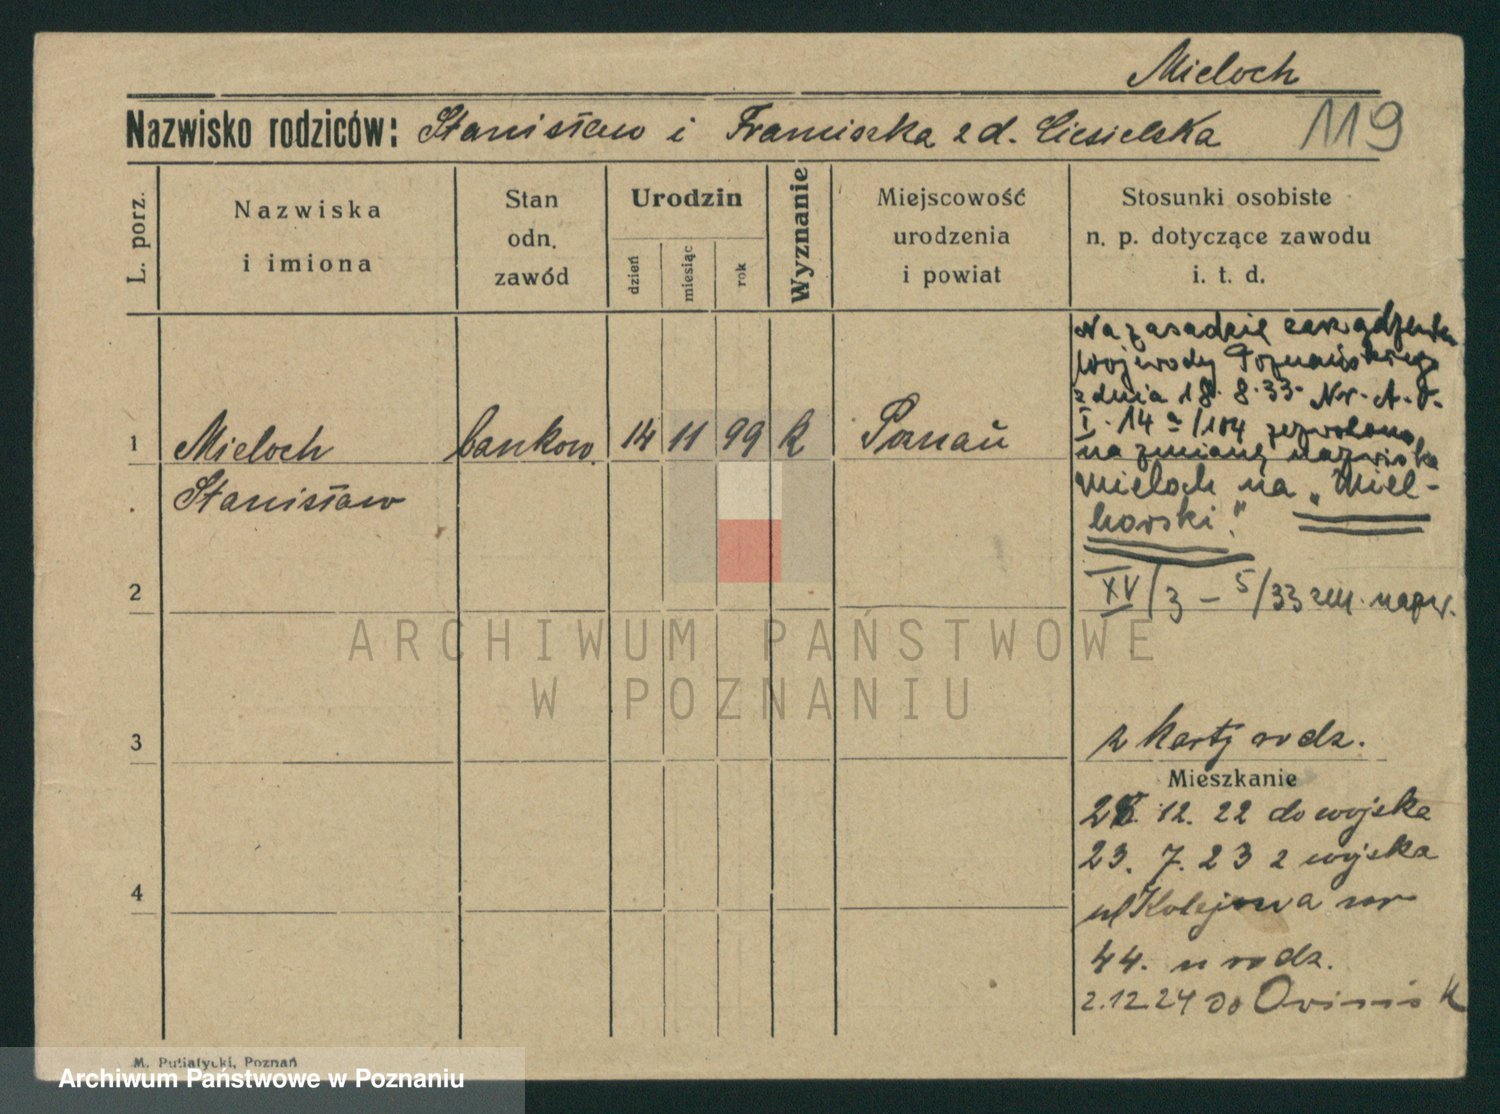 Mieloch
Nazwisko rodziców: Stanisław i Franciszka z d. Ciesielska
119
L. porz.
Nazwiska
i imiona
Stan
odn.
zawód
Urodzin
dzień
miesiąc
rok
Wyznanie
Miejscowość
urodzenia
i powiat
Stosunki osobiste
n. p. dotyczące zawodu
i. t. d.
1
Mieloch
Stanisław
bankow.
14
11
99
k
Poznań
Na zasadzie zarządzenia
Wojewody Poznańskiego
z dnia 18. 8. 33. Nr. A. O.
I. 14 a/104 zezwolono
na zmianę nazwiska
Mieloch na „Miel-
horski."
XV/3 - 5/33 zm. nazw.
2
3
4
z karty rodz.
Mieszkanie
12. 22 do wojska
23. 7. 23 z wojska
ul Kolejowa nr
44. u rodz.
2.12.24 do
M. Putiatycki, Poznań
ARCHIWUM PAŃSTWOWE
W POZNANIU
Archiwum Państwowe w Poznaniu